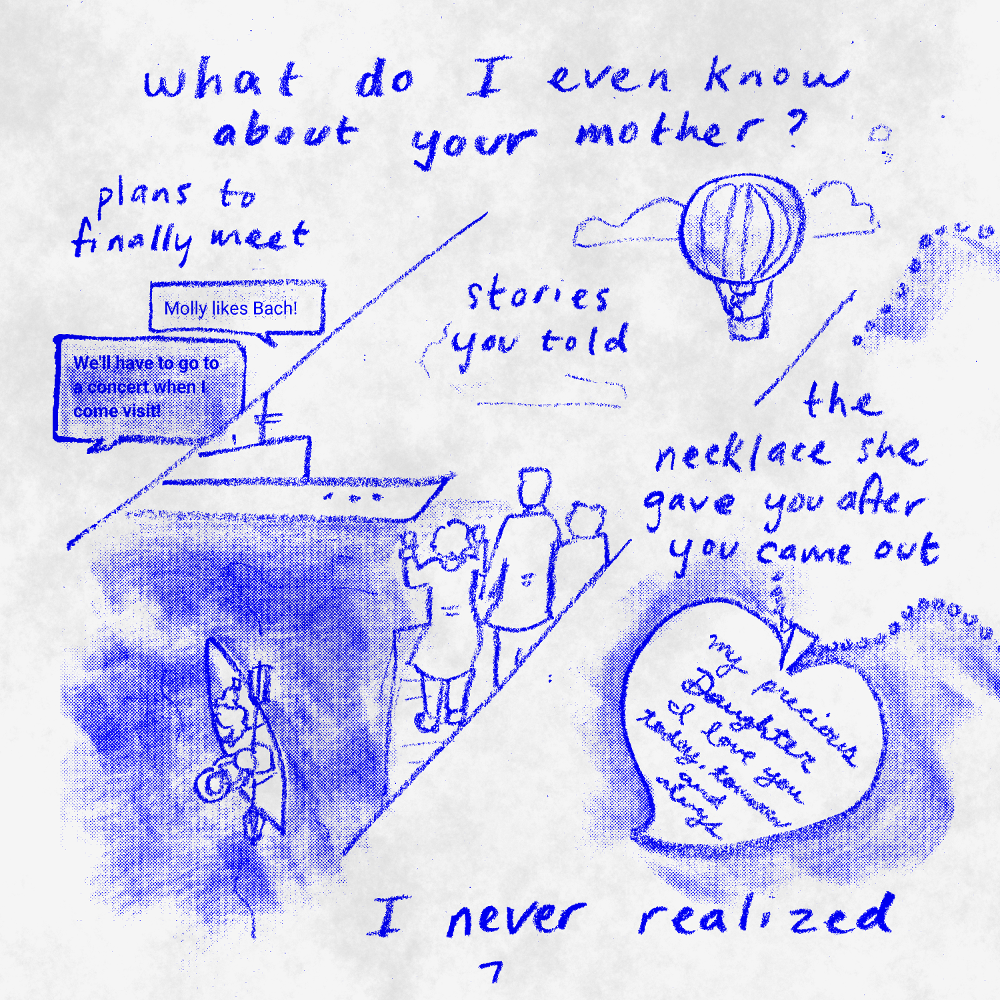 what do I even know
about your mother?
plans to
finally meet
Molly likes Bach!
We'll have to go to
a concert when I
come visit!
stories
you told
the
necklace she
gave you after
you came out
my precious
Daughter
I love you
today, tomorrow
and
always
I never realized
7